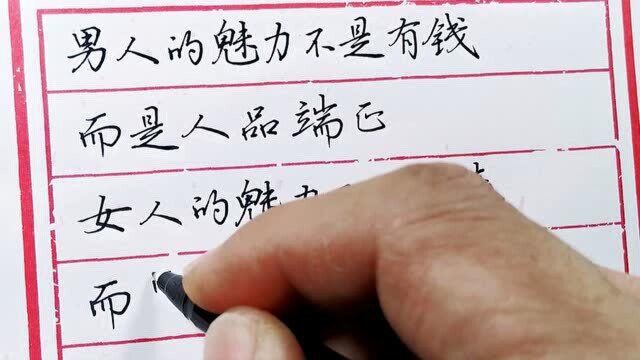 男人的魅力不是有钱
而是人品端正
女人的魅力
而